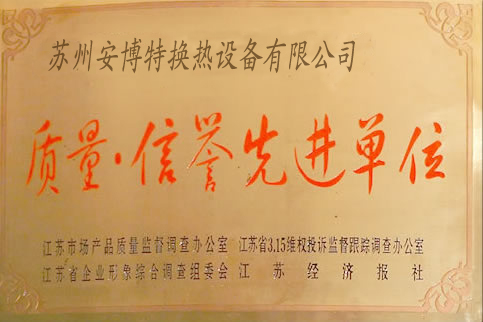 苏州安博特换热设备有限公司
质量·信誉先进单位
江苏市场产品质量监督调查办公室 江苏省3.15维权投诉监督跟踪调查办公室
江苏省企业形象综合调查组委会 江苏经济报社